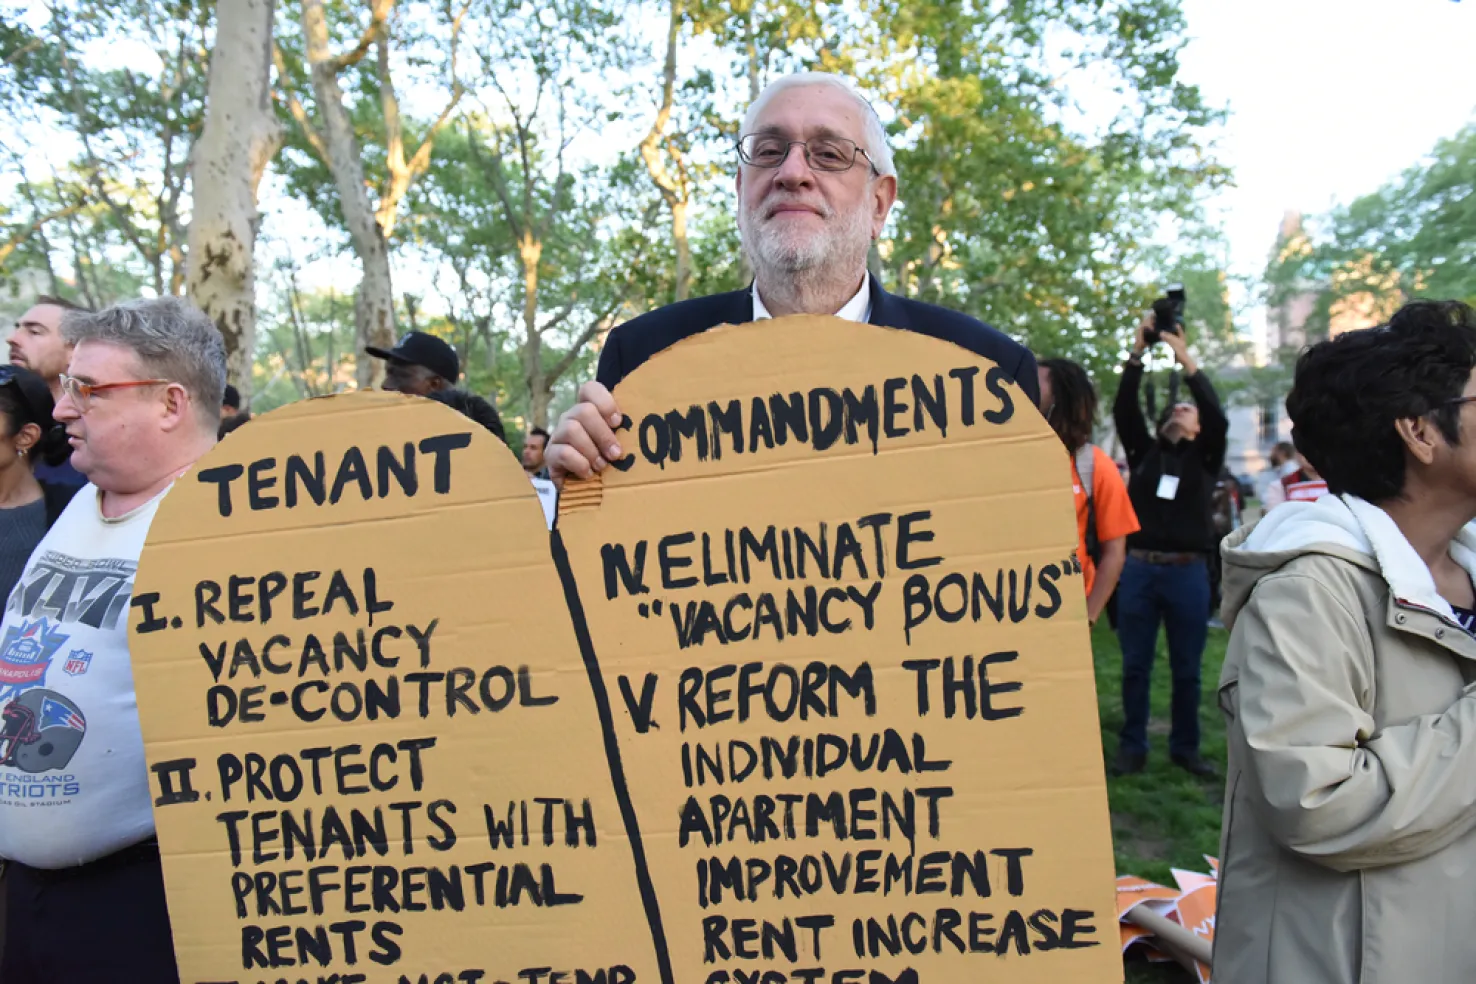 TENANT
COMMANDMENTS
I. REPEAL
VACANCY
DE-CONTROL
II. PROTECT
TENANTS WITH
PREFERENTIAL
RENTS
IV. ELIMINATE
"VACANCY BONUS"
V. REFORM THE
INDIVIDUAL
APARTMENT
IMPROVEMENT
RENT INCREASE
SYSTEM
SUPER BOWL
XLVI
NFL